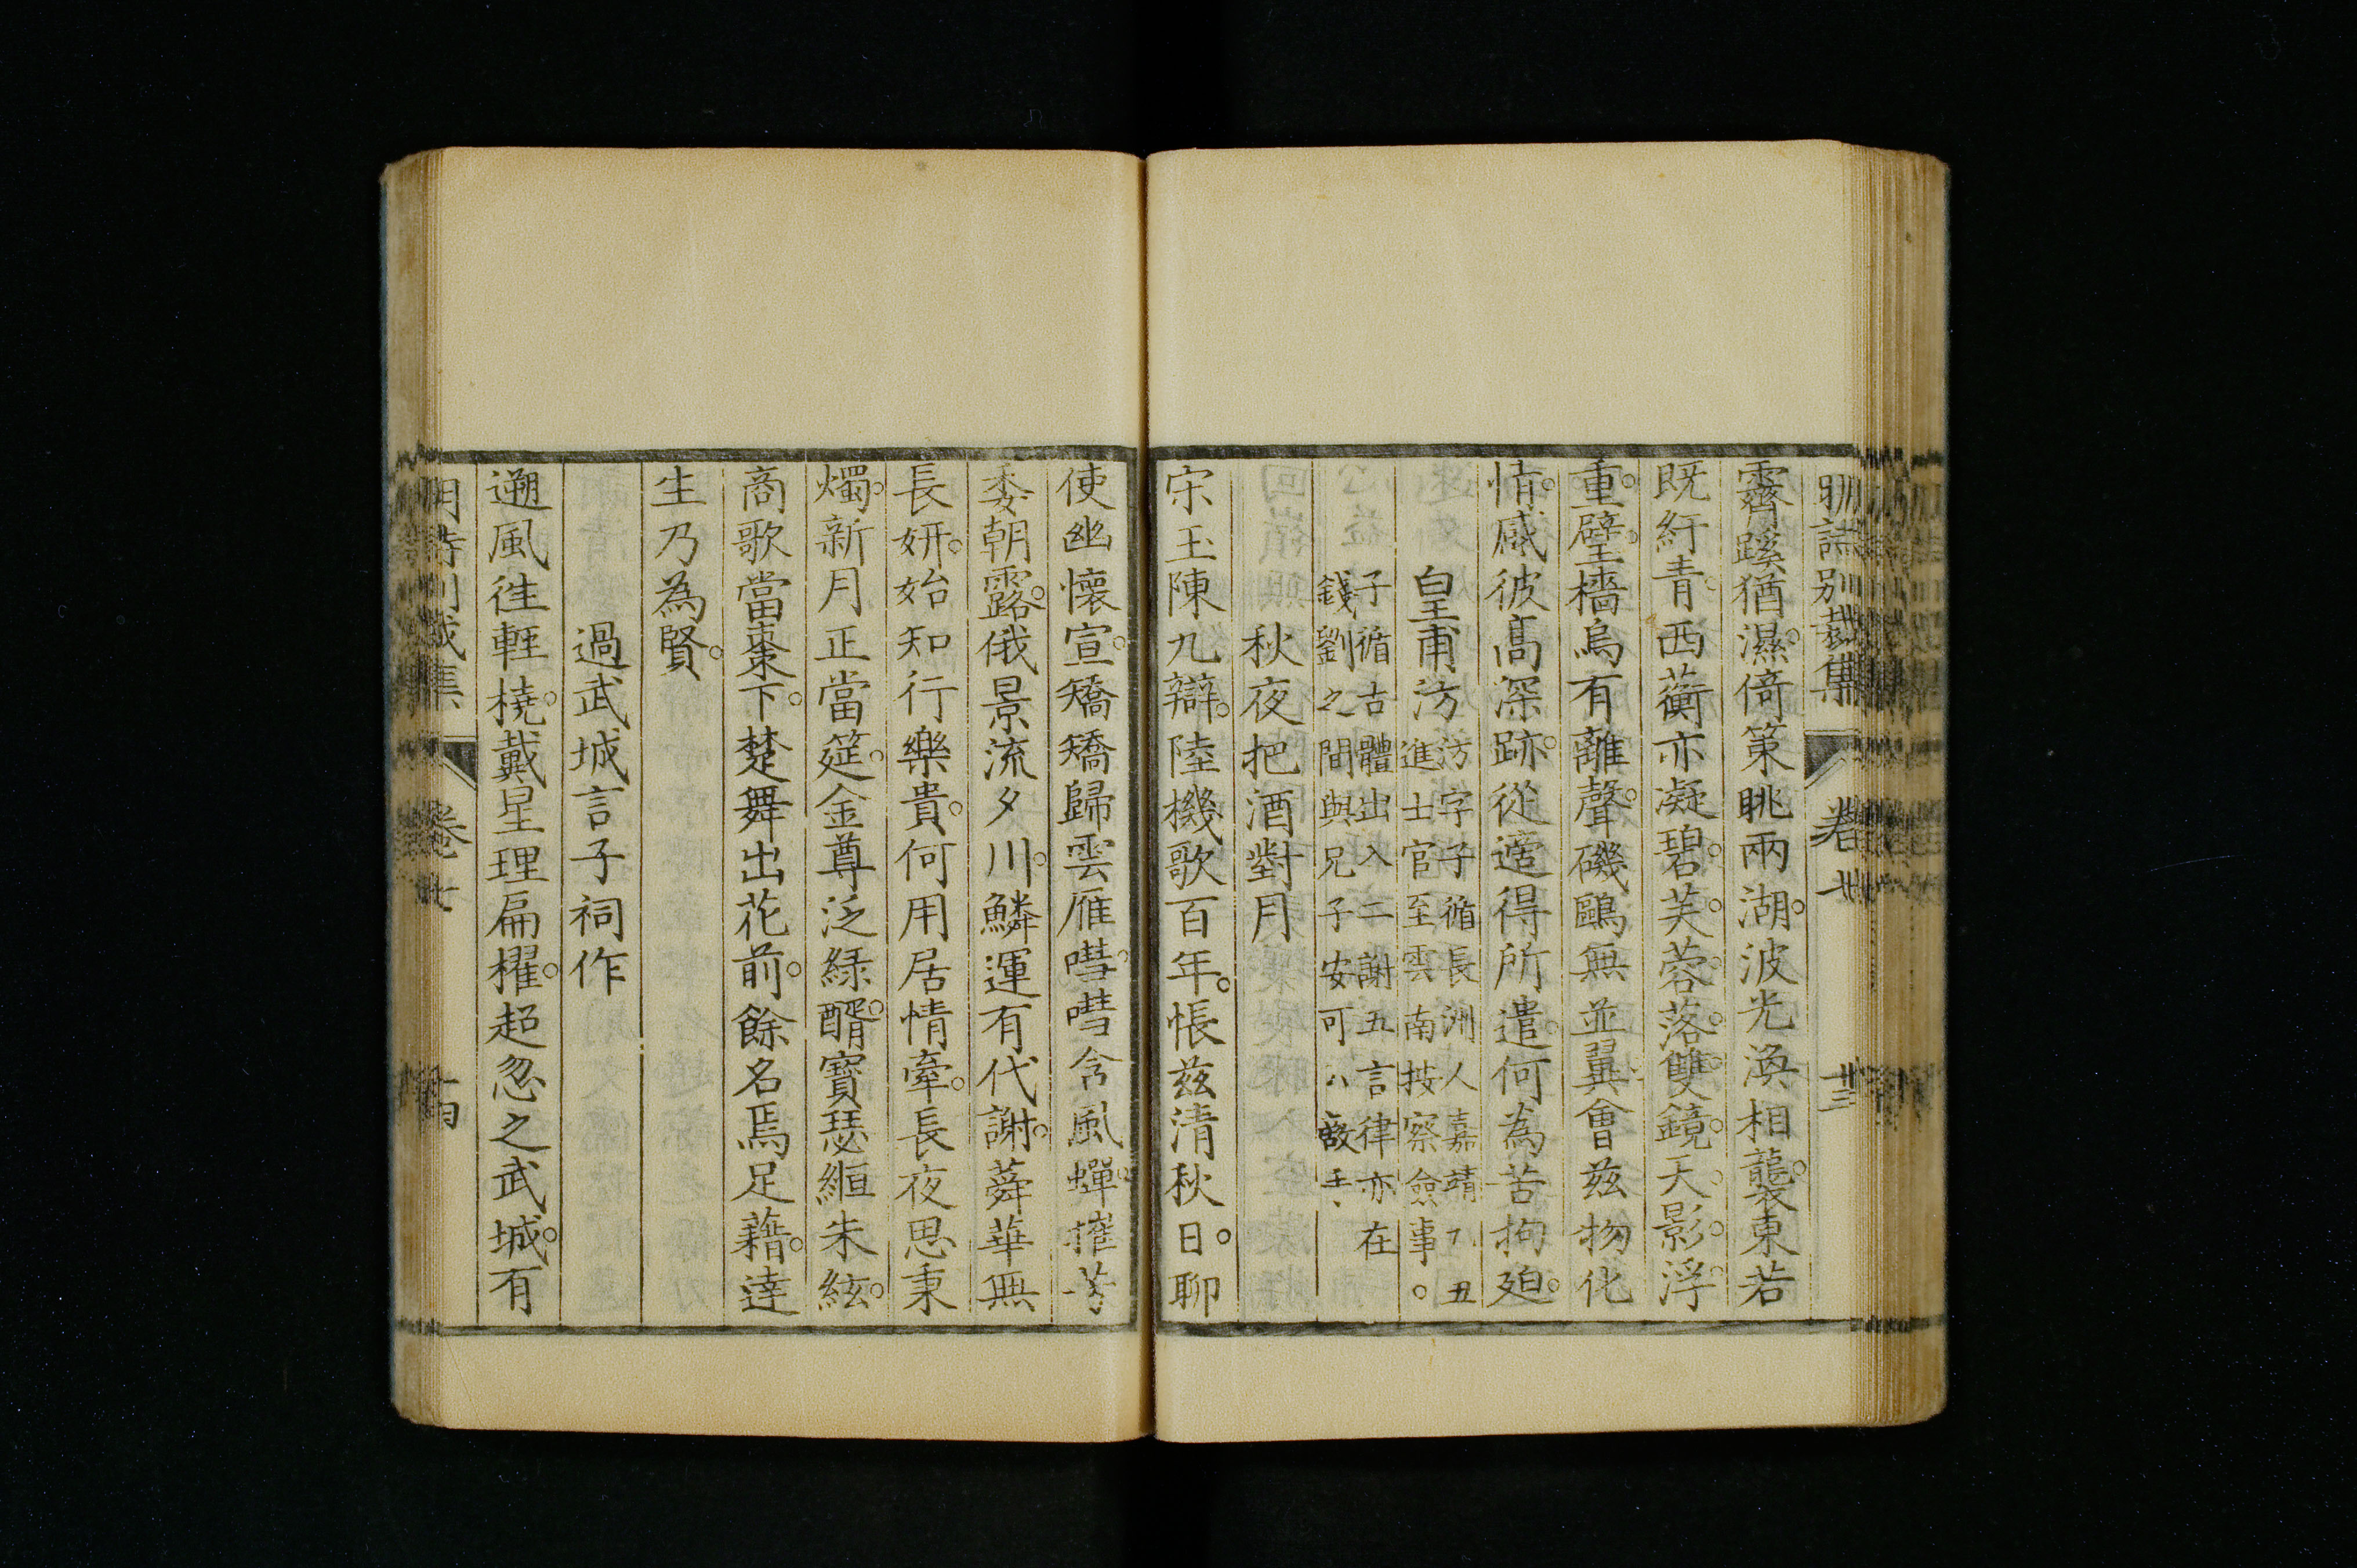 明詩別裁集 卷七 十三
霽蹊猶濕倚策眺兩湖波光渙相襲東若
既紆青西蘅亦凝碧芙蓉落雙鏡天影浮
重璧檣烏有離聲磯鷗無並翼會兹物化
情感彼高深跡從適得所遣何為苦拘廹
皇甫汸
汸字子循長洲人嘉靖 丑
進士官至雲南按察僉事
子循古體出入二謝五言律亦在
錢劉之間與兄子安可
秋夜把酒對月
宋玉陳九辯陸機歌百年悵兹清秋日聊
使幽懷宣矯矯歸雲雁嘒嘒含風蟬摧芳
委朝露俄景流夕川鱗運有代謝蕣華無
長妍始知行樂貴何用居情牽長夜思秉
燭新月正當筵金尊泛緑醑寶瑟緪朱絃
商歌當棗下楚舞出花前餘名焉足藉達
生乃為賢
過武城言子祠作
遡風徃輕橈戴星理扁櫂超忽之武城有
明詩別裁集 卷七 十四